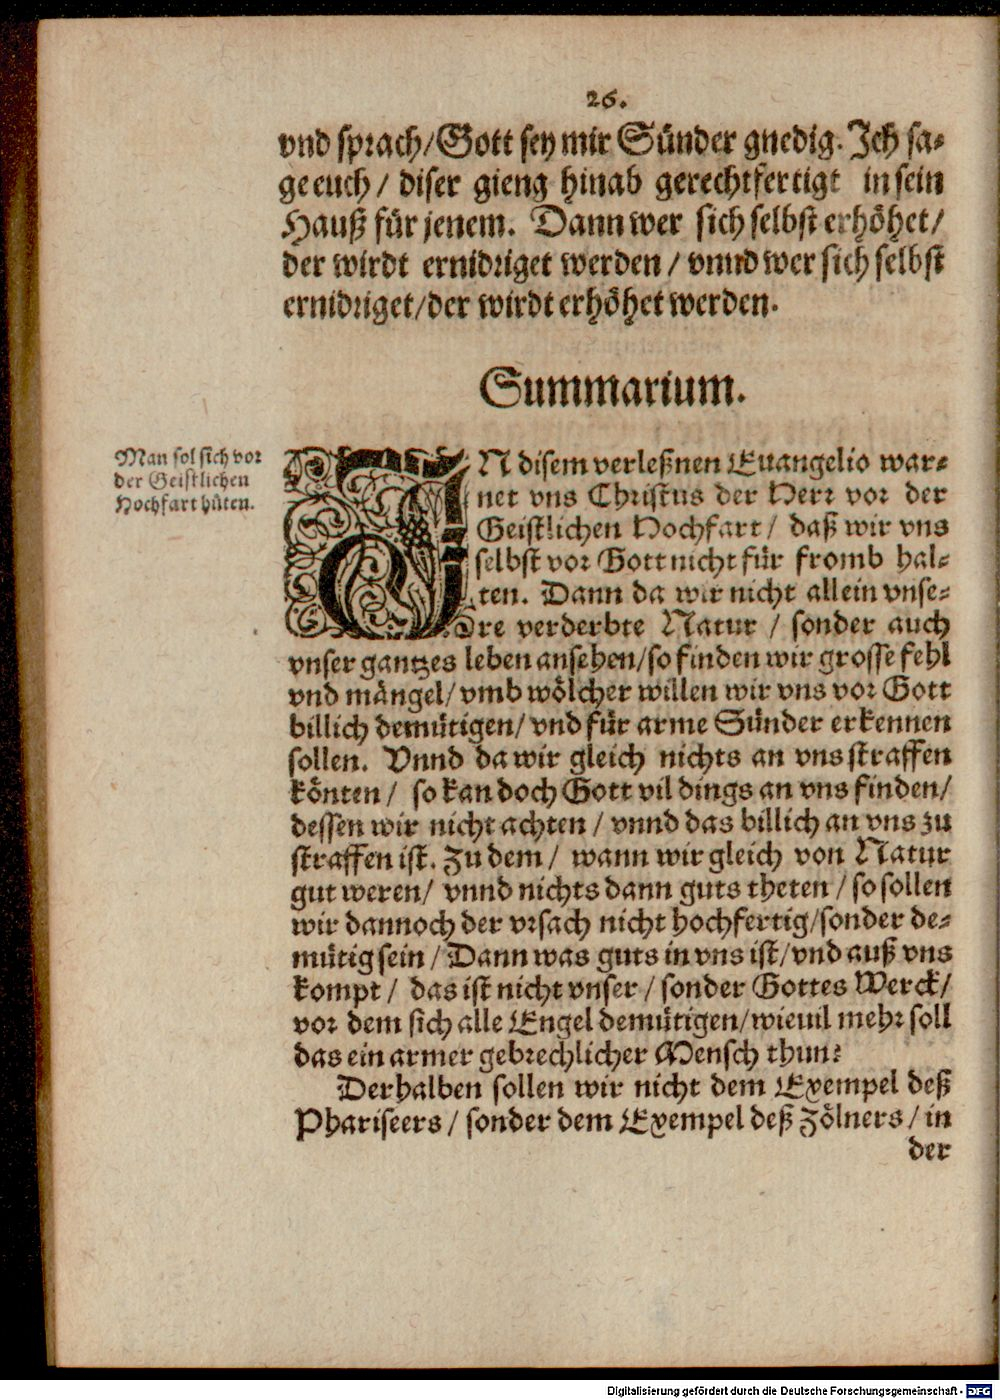 26.
vnd sprach/Gott sey mir Sünder gnedig. Ich sa-
ge euch / diser gieng hinab gerechtfertigt in sein
Hauß für jenem. Dann wer sich selbst erhöhet/
der wirdt ernidriget werden / vnnd wer sich selbst
ernidriget/der wirdt erhöhet werden.
Summarium.
Man sol sich vor
der Geistlichen
Hochfart hüten.
IN disem verleßnen Euangelio war-
net vns Christus der Herr vor der
Geistlichen Hochfart / daß wir vns
selbst vor Gott nicht für fromb hal-
ten. Dann da wir nicht allein vnse-
re verderbte Natur / sonder auch
vnser gantzes leben ansehen/so finden wir grosse fehl
vnd mängel/ vmb wölcher willen wir vns vor Gott
billich demütigen/ vnd für arme Sünder erkennen
sollen. Vnnd da wir gleich nichts an vns straffen
könten / so kan doch Gott vil dings an vns finden/
dessen wir nicht achten / vnnd das billich an vns zu
straffen ist. Zu dem / wann wir gleich von Natur
gut weren/ vnnd nichts dann guts theten / so sollen
wir dannoch der vrsach nicht hochfertig/sonder de-
mütig sein / Dann was guts in vns ist/vnd auß vns
kompt / das ist nicht vnser / sonder Gottes Werck/
vor dem sich alle Engel demütigen/wieuil mehr soll
das ein armer gebrechlicher Mensch thun?
Derhalben sollen wir nicht dem Exempel deß
Phariseers / sonder dem Exempel deß Zölners / in
der
Digitalisierung gefördert durch die Deutsche Forschungsgemeinschaft - DFG